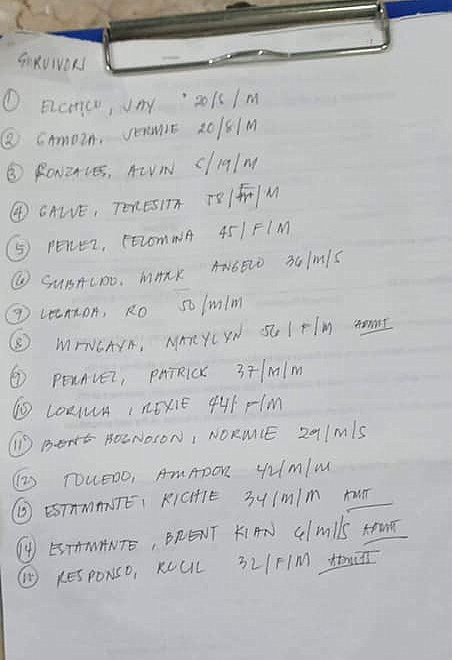 SURVIVORS
① ELCHICO, JAY 20/S/M
② GAMOZA, VERMIE 20/S/M
③ RONZALES, ALVIN C/19/M
④ GALVE, TERESITA 58/F/M
⑤ PEREZ, FELOMINA 45/F/M
⑥ SUBALDO, MARK ANGELO 36/M/S
⑦ LEGARDA, RO 50/M/M
⑧ MINGAYA, MARYLYN 56/F/M ADMIT
⑨ PERALEZ, PATRICK 37/M/M
⑩ LORILLA, REXIE 44/F/M
⑪ HOGNOSON, NORMIE 29/M/S
⑫ TOLLEDO, AMADOR 42/M/M
⑬ ESTAMANTE, RICHIE 34/M/M AMIT
⑭ ESTAMANTE, BRENT KIAN 6/M/S ADMIT
⑮ RESPONSO, 32/F/M ADMIT